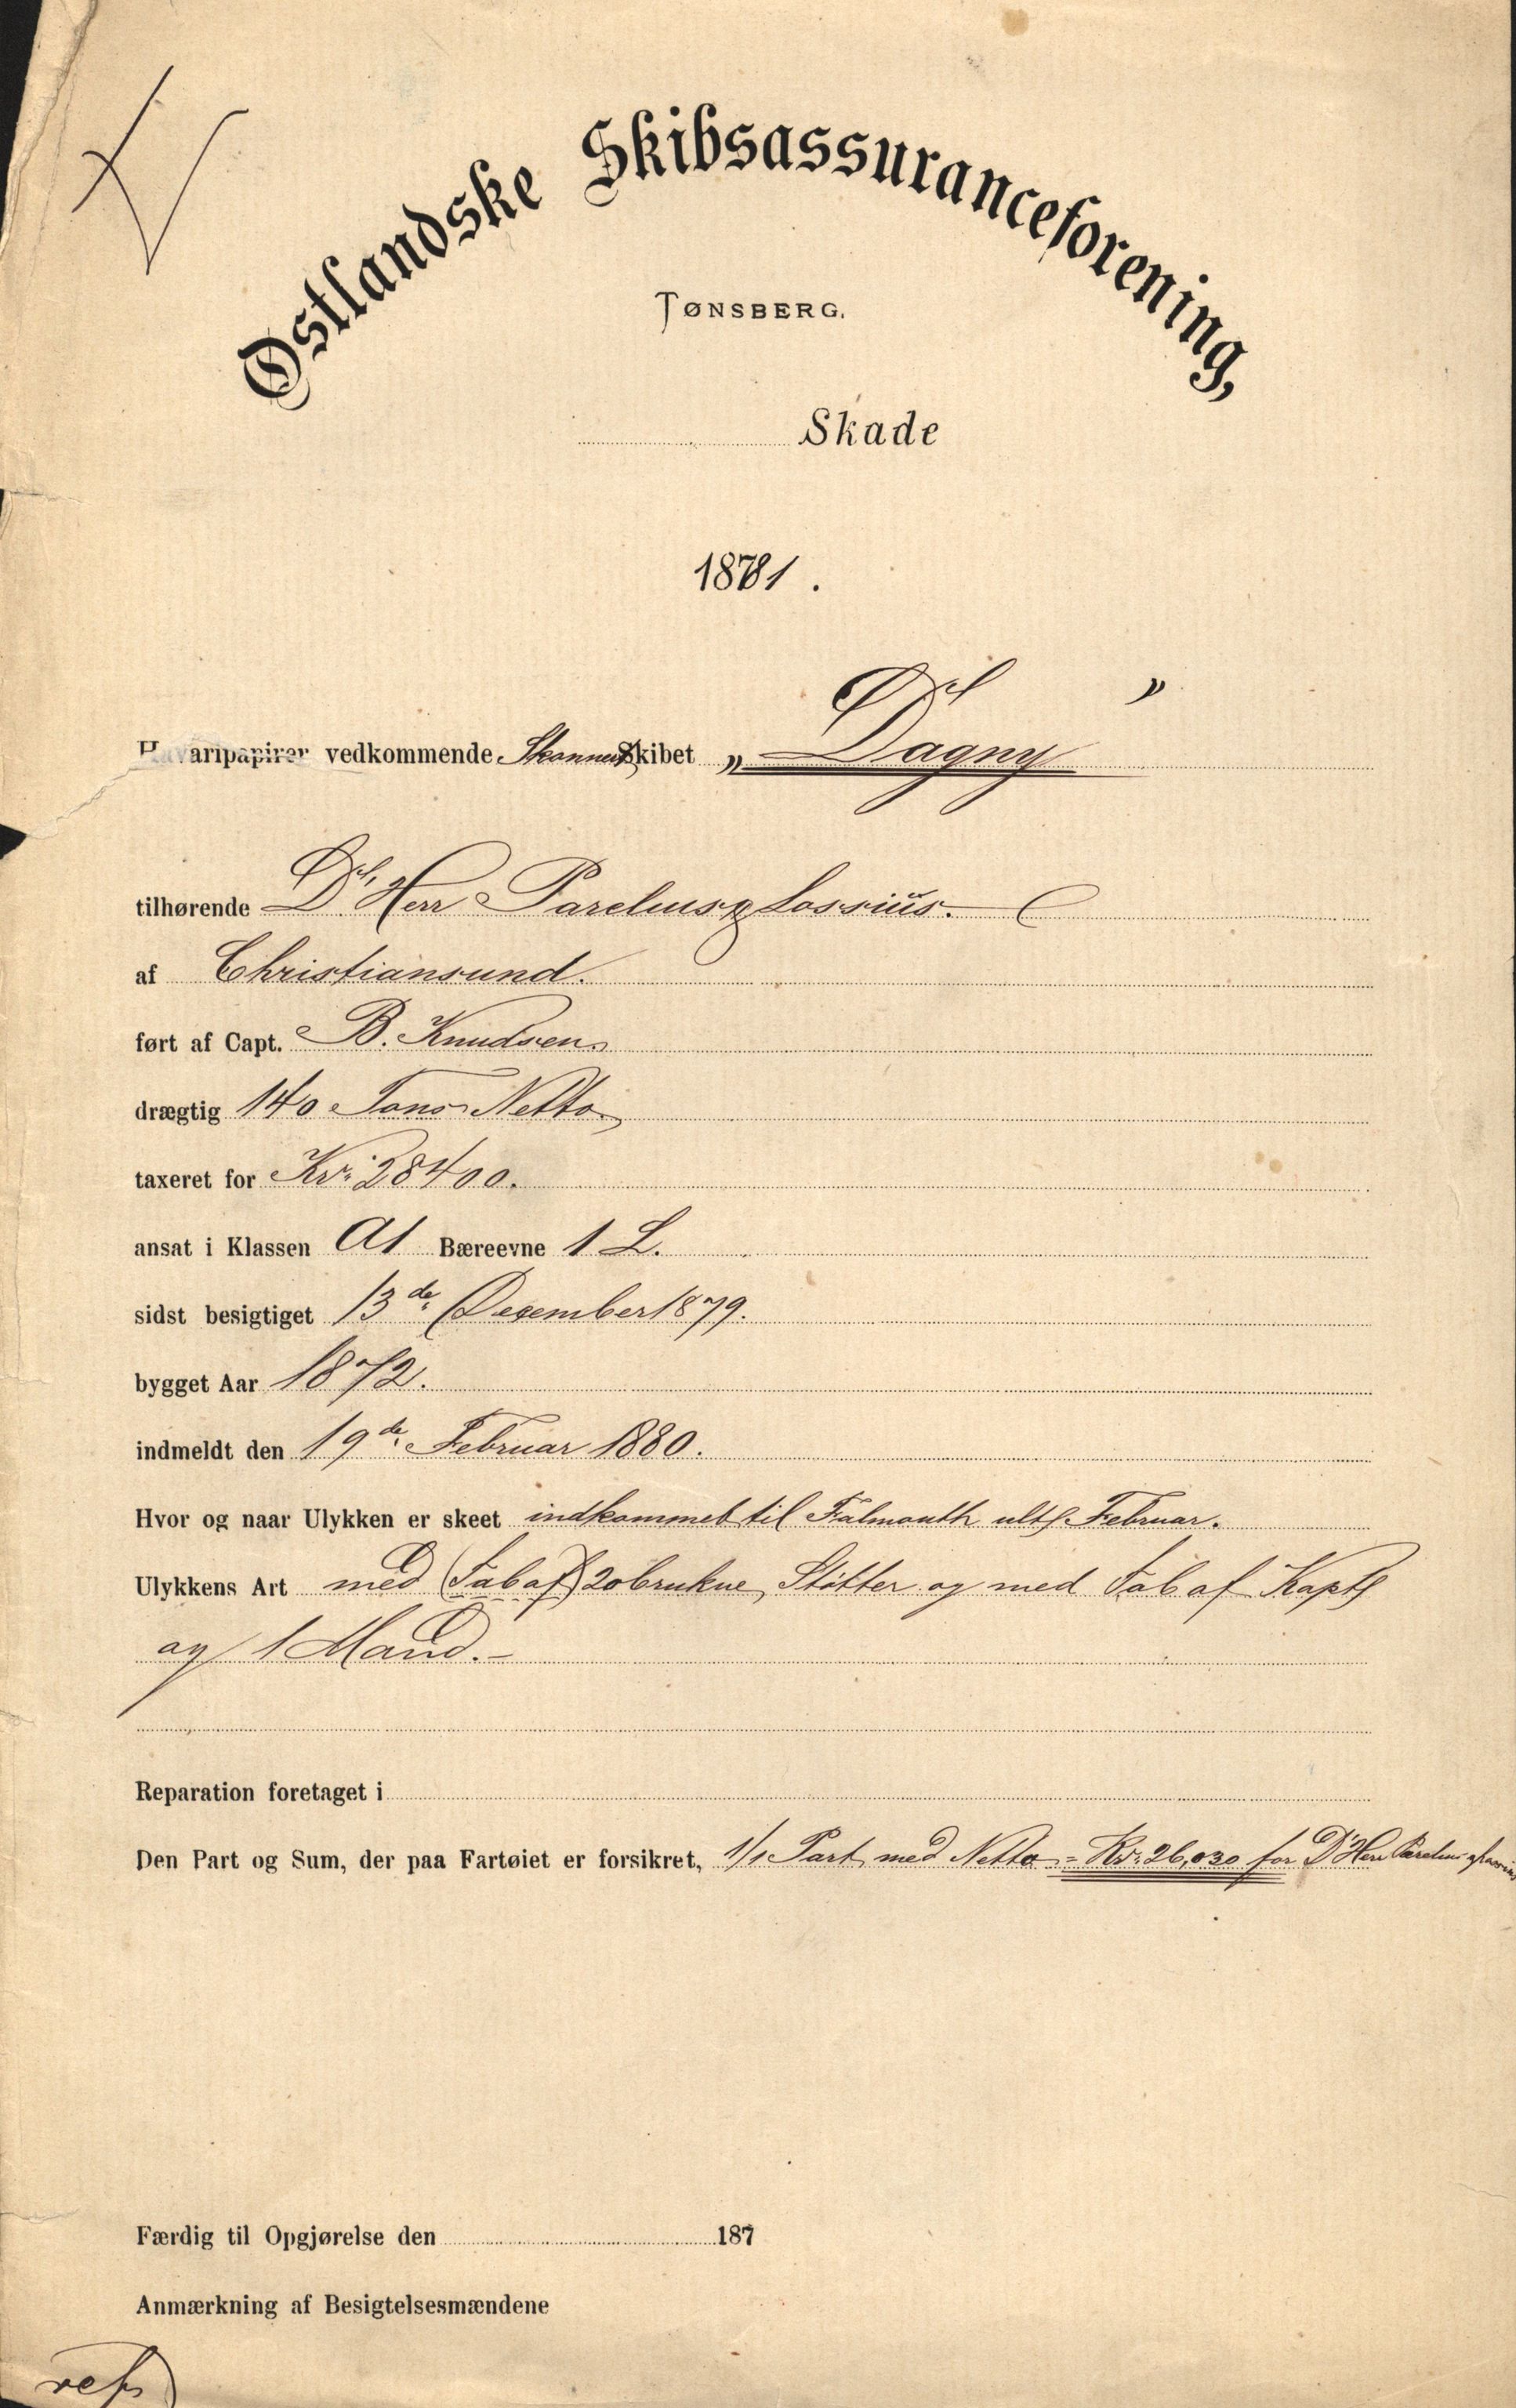 Østlandske Skibsassuranceforening,
TØNSBERG.
Skade
1881.
Havaripapirer vedkommende Skonnert Skibet „Dagny"
tilhørende D'Herr Parelius & Lossius.
af Christiansund.
ført af Capt. B. Knudsen
drægtig 140 Tons Netto
taxeret for Kr. 28400.
ansat i Klassen A1 Bæreevne 1 L.
sidst besigtiget 13de December 1879.
bygget Aar 1872.
indmeldt den 19de Februar 1880.
Hvor og naar Ulykken er skeet indkommet til Falmouth ult. Februar.
Ulykkens Art med (Tab af) 20 brukne Støtter og med Tab af Kapt
og 1 Mand.-
Reparation foretaget i
Den Part og Sum, der paa Fartøiet er forsikret, 1/1 Part med Netto = Kr. 26,030 for D'Herr Parelius & Lossius
Færdig til Opgjørelse den 187
Anmærkning af Besigtelsesmændene